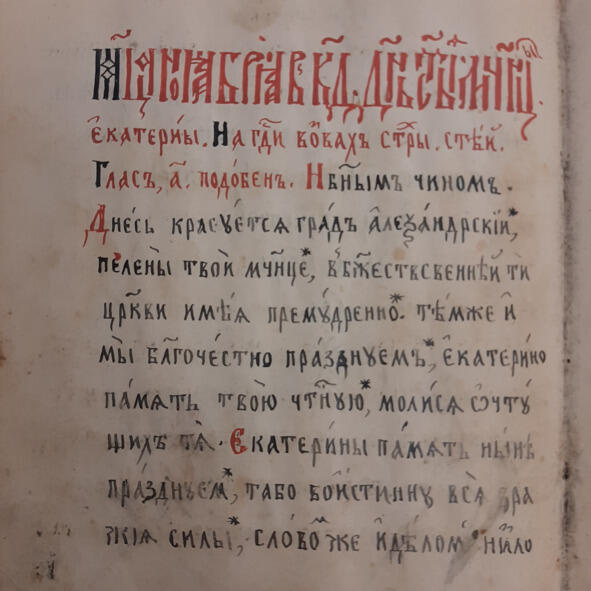 Мц҃а ноѧбриѧ в к҃д. дн҃ь ст҃ыѧ мч҃нцы
є҆катери́ны. На гд҃и во́звахъ стр҃ы. сте́й.
Гласъ, а҃. подо́бенъ. Нб҃ныімъ чиномъ.
Дне́сь красꙋ́етсѧ гра́дъ а҆леѯа́ндрскїй,
пелены̀ твоѝ мч҃нце, в бж҃ествсвеннѣй ти
цр҃кви имѣ́ѧ премꙋ́дренно. тѣ́мже и҆
мы̀ бл҃гоче́стно пра́зднꙋемъ, є҆катерино
па́мѧть твою̀ чт҃нꙋю, моли́сѧ ѡ҆ чтꙋ́
щихъ тѧ̀. Єкатери́ны па́мѧть ны́нѣ
пра́зднꙋем, та бо вои́стиннꙋ всѧ̑ вра
жиѧ си́лы, сло́вом же и҆ дѣ́лом ни́ло